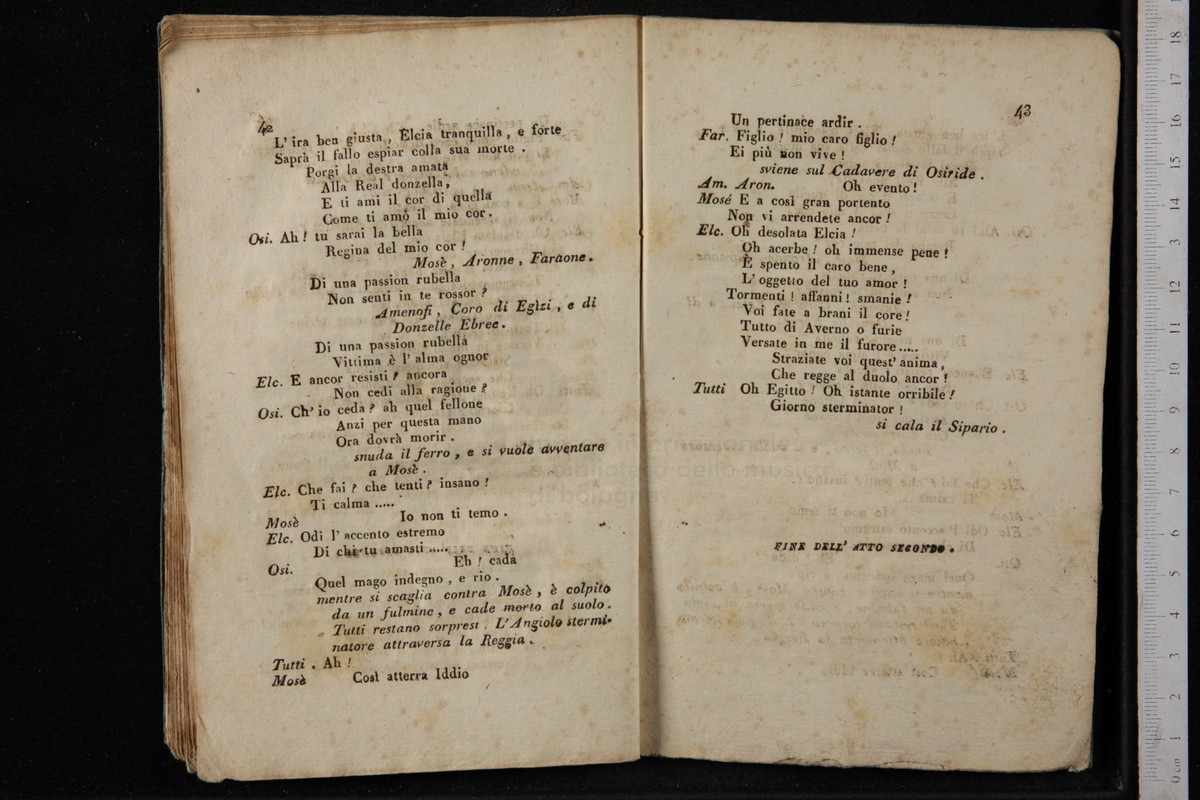 42
L' ira ben giusta, Elcia tranquilla, e forte
Saprà il fallo espiar colla sua morte.
Porgi la destra amata
Alla Real donzella,
E ti ami il cor di quella
Come ti amò il mio cor.
Osi. Ah! tu sarai la bella
Regina del mio cor!
Mosè, Aronne, Faraone.
Di una passion rubella
Non senti in te rossor?
Amenofi, Coro di Egizi, e di
Donzelle Ebree.
Di una passion rubella
Vittima è l' alma ognor
Elc. E ancor resisti? ancora
Non cedi alla ragione?
Osi. Ch' io ceda? ah quel fellone
Anzi per questa mano
Ora dovrà morir.
snuda il ferro, e si vuole avventare
a Mosè.
Elc. Che fai? che tenti? insano!
Ti calma .....
Mosè Io non ti temo.
Elc. Odi l' accento estremo
Di chi tu amasti .....
Osi. Eh! cada
Quel mago indegno, e rio.
mentre si scaglia contra Mosè, è colpito
da un fulmine, e cade morto al suolo.
Tutti restano sorpresi. L'Angiolo stermi-
natore attraversa la Reggia.
Tutti. Ah!
Mosè Così atterra Iddio
43
Un pertinace ardir.
Far. Figlio! mio caro figlio!
Ei più non vive!
sviene sul Cadavere di Osiride.
Am. Aron. Oh evento!
Mosé E a così gran portento
Non vi arrendete ancor!
Elc. Oh desolata Elcia!
Oh acerbe! oh immense pene!
È spento il caro bene,
L' oggetto del tuo amor!
Tormenti! affanni! smanie!
Voi fate a brani il core!
Tutto di Averno o furie
Versate in me il furore.....
Straziate voi quest' anima,
Che regge al duolo ancor!
Tutti Oh Egitto! Oh istante orribile!
Giorno sterminator!
si cala il Sipario.
FINE DELL' ATTO SECONDO.
internazionale
e biblioteca della musica
di bologna
0 cm 1 2 3 4 5 6 7 8 9 10 11 12 13 14 15 16 17 18